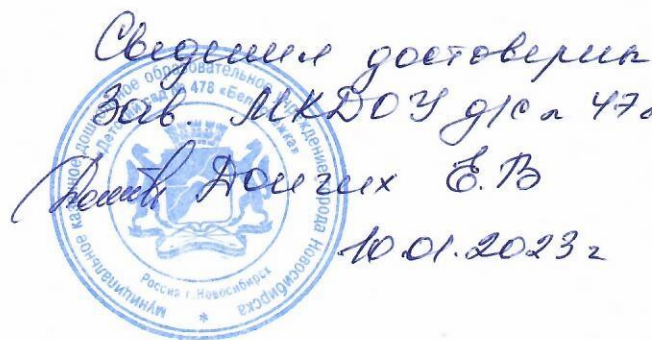 Сведения достоверны
Зав. МКДОУ д/с № 478
Долгих Е.В
10.01.2023 г
муниципальное казенное дошкольное образовательное учреждение города Новосибирска
«Детский сад № 478 «Белоснежка»
Россия г. Новосибирск